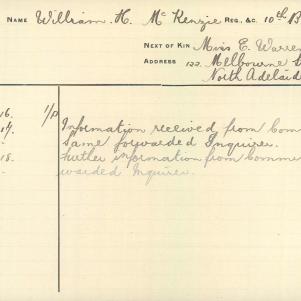 NAME William. H. McKenzie REG, &C. 10th B
NEXT OF KIN Miss E. Warren
ADDRESS 122. Melbourne S
North Adelaide
16. 1/p
14. Information received from Com
" Same forwarded Inquirer.
18. Further information from Comm
warded Inquirer.